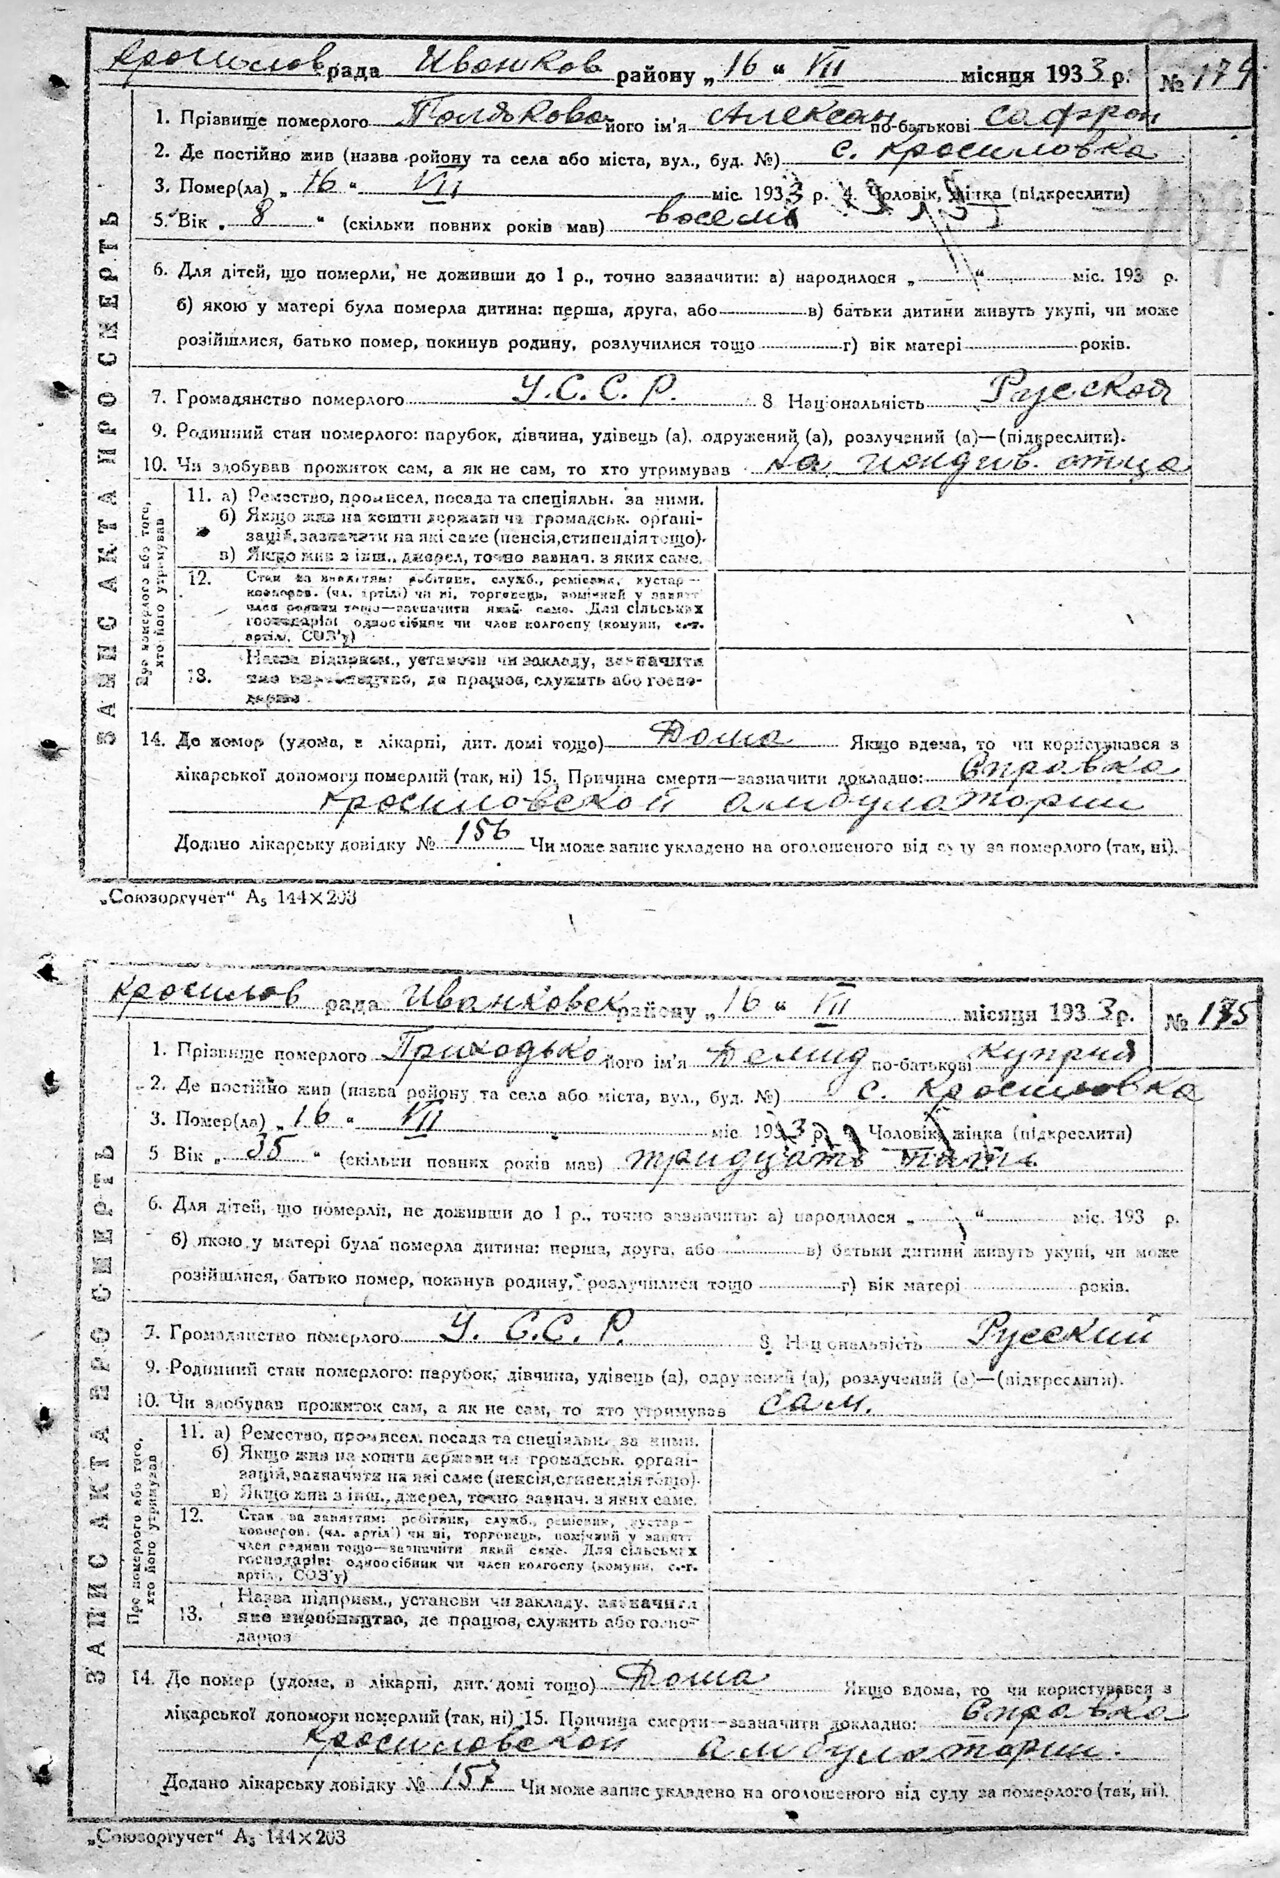 Красилов рада Иванков району „16“ VII місяця 1933 р. № 174
1. Прізвище померлого Полякова його ім'я Алексан по-батькові Сафрон
2. Де постійно жив (назва району та села або міста, вул., буд. №) с. Красиловка
3. Помер(ла) „16“ VII міс. 1933 р. 4. Чоловік, жінка (підкреслити)
5. Вік „8“ (скільки повних років мав) восемь
6. Для дітей, що померли, не доживши до 1 р., точно зазначити: а) народилося „ “ міс. 193 р.
б) якою у матері була померла дитина: перша, друга, або в) батьки дитини живуть укупі, чи може
розійшлися, батько помер, покинув родину, розлучилися тощо г) вік матері років.
7. Громадянство померлого У.С.С.Р. 8 Національність Русской
9. Родинний стан померлого: парубок, дівчина, удівець (а), одружений (а), розлучений (а)—(підкреслити).
10. Чи здобував прожиток сам, а як не сам, то хто утримував на иждив. отца
ЗАПИС АКТА ПРО СМЕРТЬ
Про померлого або того,
хто його утримував
11. а) Ремество, промисел, посада та спеціяльн. за ними.
б) Якщо жив на кошти держави чи громадськ. органі-
зацій, зазначити на які саме (пенсія, стипендія тощо).
в) Якщо жив з інш., джерел, точно зазнач. з яких саме.
12. Стан за заняттям: робітник, служб., ремісник, кустар—
кооперов. (чл. артілі) чи ні, торговець, помічний у занятт
член родини тощо—зазначити який саме. Для сільських
господарів: одноосібник чи член колгоспу (комуни, с.-г.
артіл, СОЗ'у)
13. Назва підприєм., установи чи закладу, зазначити
яке виробництво, де працює, служить або госпо-
дарює
14. Де помер (удома, в лікарні, дит. домі тощо) Дома Якщо вдома, то чи користувався з
лікарської допомоги померлий (так, ні) 15. Причина смерти—зазначити докладно: Справка
Красиловской амбулатории
Додано лікарську довідку № 156 Чи може запис укладено на оголошеного від суду за померлого (так, ні).
„Союзоргучет“ А₅ 144×203
Красилов рада Иванковск району „16“ VII місяця 1933 р. № 175
1. Прізвище померлого Приходько його ім'я Демид по-батькові Куприя
2. Де постійно жив (назва району та села або міста, вул., буд. №) с. Красиловка
3. Помер(ла) „16“ VII міс. 1933 р. 4 Чоловік, жінка (підкреслити)
5 Вік „35“ (скільки повних років мав) тридцать пять
6. Для дітей, що померли, не доживши до 1 р., точно зазначить: а) народилося „ “ міс. 193 р.
б) якою у матері була померла дитина: перша, друга, або в) батьки дитини живуть укупі, чи може
розійшлися, батько помер, покинув родину, розлучилися тощо г) вік матері років.
7. Громадянство померлого У.С.С.Р. 8. Національність Русский
9. Родинний стан померлого: парубок, дівчина, удівець (а), одружений (а), розлучений (а)—(підкреслити).
10. Чи здобував прожиток сам, а як не сам, то хто утримував сам.
ЗАПИС АКТА ПРО СМЕРТЬ
Про померлого або того,
хто його утримував
11. а) Ремество, промисел, посада та спеціяльн. за ними.
б) Якщо жив на кошти держави чи громадськ. органі-
зацій, зазначити на які саме (пенсія, стипендія тощо).
в) Якщо жив з інш., джерел, точно зазнач. з яких саме.
12. Стан за заняттям: робітник, служб., ремісник, кустар—
кооперов. (чл. артілі) чи ні, торговець, помічний у занятт
член родини тощо—зазначити який саме. Для сільських
господарів: одноосібник чи член колгоспу (комуни, с.-г.
артіл, СОЗ'у)
13. Назва підприєм., установи чи закладу, зазначити
яке виробництво, де працює, служить або госпо-
дарює
14. Де помер (удома, в лікарні, дит. домі тощо) Дома Якщо вдома, то чи користувався з
лікарської допомоги померлий (так, ні) 15. Причина смерти—зазначити докладно: Справка
Красиловской амбулатории.
Додано лікарську довідку № 157 Чи може запис укладено на оголошеного від суду за померлого (так, ні).
„Союзоргучет“ А₅ 144×203